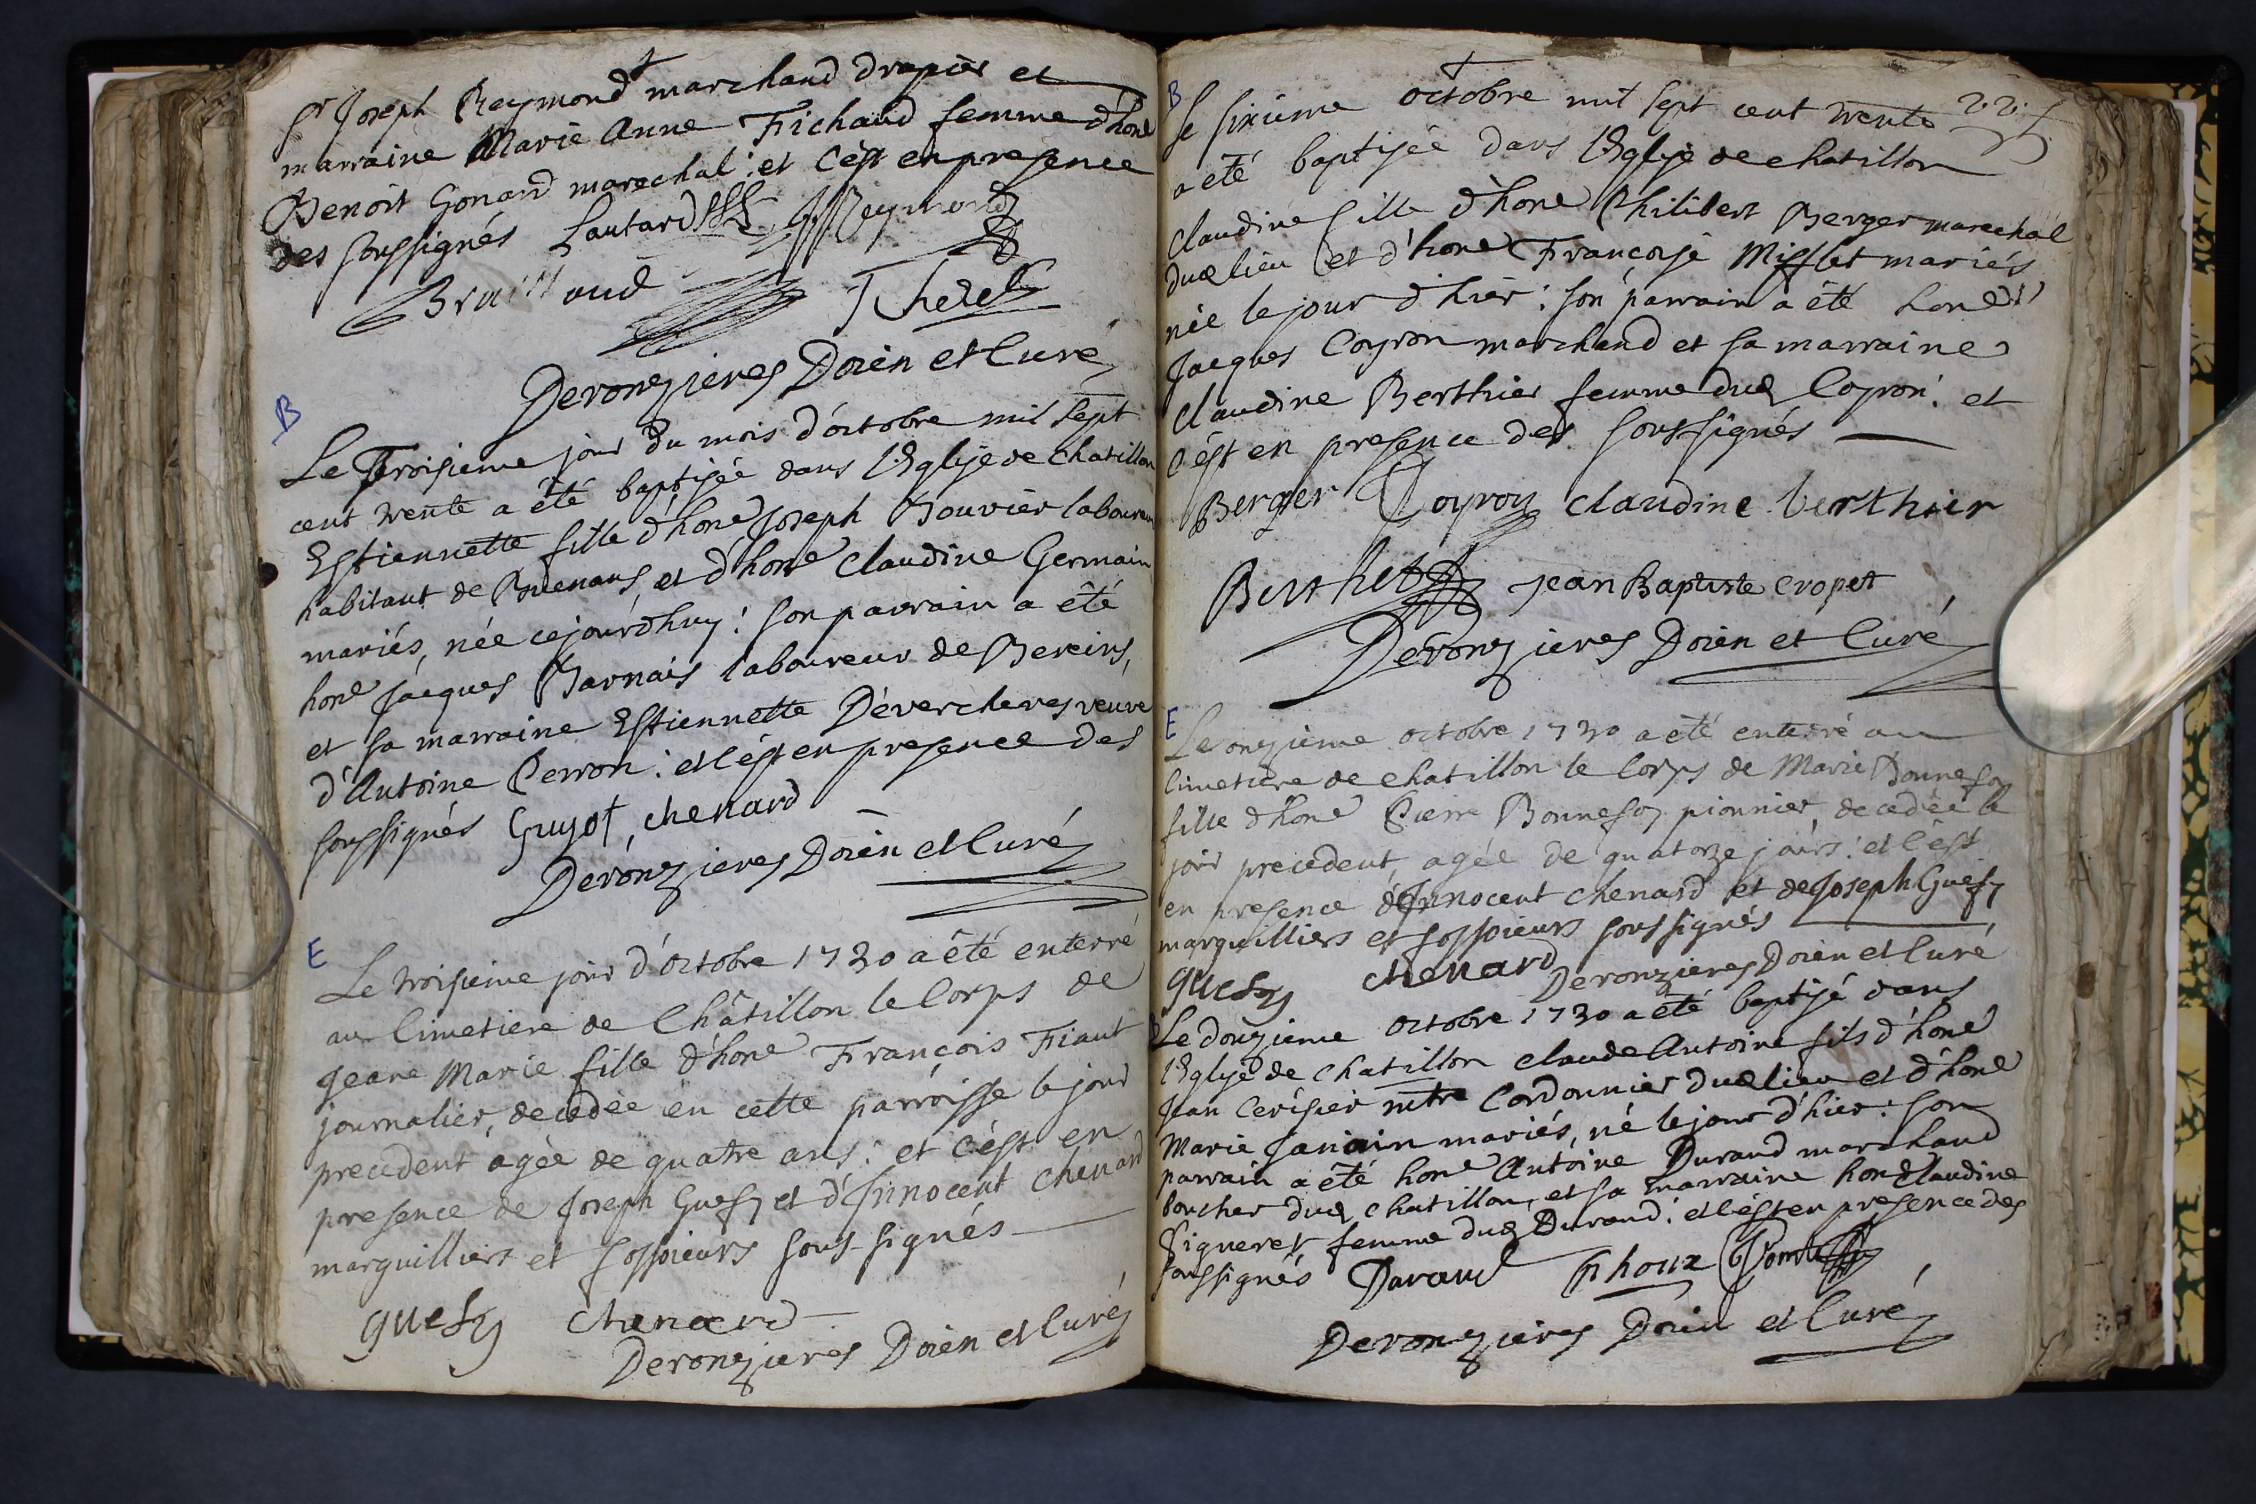 Sr Joseph Reymond marchand drapier et
marraine Marie Anne Fichaud femme d'hone
Benoit Gonard marechal: et c'est en presence
des soussignés Lautard Reymond
Brailloud Thevet
Deronzieres Doien et Curé
B
Le Troisieme jour du mois d'octobre mil sept
cent trente a été baptisée dans l'Eglise de Chatillon
Estiennette fille d'hone Joseph Bouvier laboureur
habitant de Buenans, et d'hone Claudine Germain
mariés, née cejourdhuy: son parrain a été
hone Jacques Barnais laboureur de Bereins,
et sa marraine Estiennette Devercheres veuve
d'Antoine Perron: et c'est en presence des
soussignés Guyot, chenard
Deronzieres Doien et Curé
E
Le troisieme jour d'octobre 1730 a été enterré
au Cimetiere de Châtillon le Corps de
Jeane Marie fille d'hone François Fiaut
journalier, decedée en cette parroisse le jour
precedent agée de quatre ans: et c'est en
presence de Joseph Guesy et d'Innocent Chenard
marguilliers et fossoieurs sous-signés
guesy chenard
Deronzieres Doien et Curé
B
Le sixieme octobre mil sept cent trente
a été baptisée dans l'Eglise de chatillon
Claudine fille d'hone Philibert Berger marechal
dud lieu et d'hone Françoise Mifflet mariés
née le jour d'hier: son parrain a été hone
Jacques Coyron marchand et sa marraine
Claudine Berthier femme dud Coyron: et
c'est en presence des soussignés
Berger Coyron claudine berthier
Berthet jean Baptiste cropet
Deronzieres Doien et Curé
E
Le onzieme octobre 1730 a été enterré au
Cimetiere de chatillon le Corps de Marie Bonnefoy
fille d'hone Pierre Bonnefoy pionnier, decedée le
jour precedent, agée de quatorze jours: et c'est
en presence d'Innocent chenard et de Joseph Guesy
marguilliers et fossoieurs soussignés
guesy chenard
Deronzieres Doien et Curé
Le douzieme octobre 1730 a été baptisé dans
l'Eglise de chatillon Claude Antoine fils d'hone
Jean Cerisier mtre Cordonnier dud lieu et d'hone
Marie Janain mariés, né le jour d'hier: son
parrain a été hone Antoine Durand marchand
boucher dud chatillon, et sa marraine hone Claudine
Figueret femme dud Durand: et c'est en presence des
soussignés Durand Phoux
Deronzieres Doien et Curé